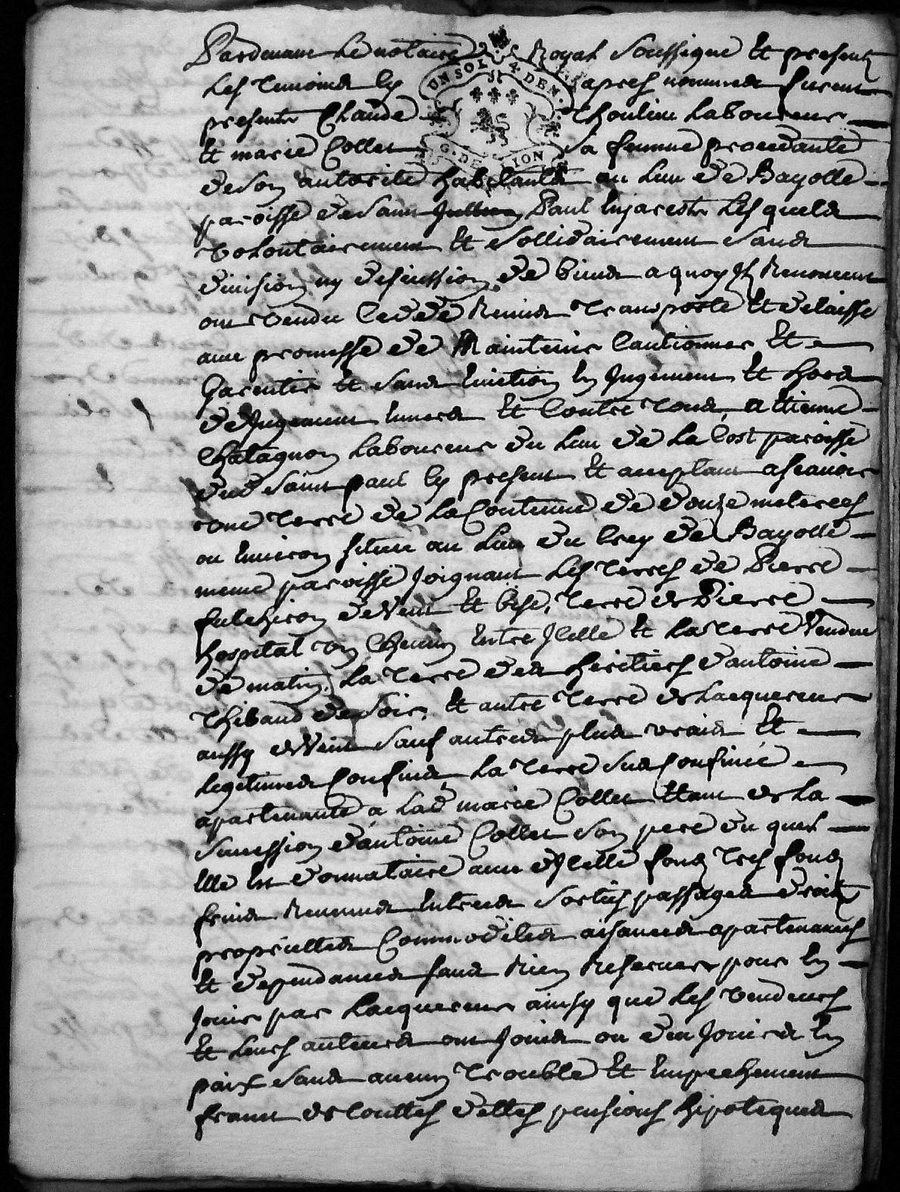 Pardevant Le notaire Royal Soussigné Et presents
UN SOL 4 DEN.
Les temoins Cy apres nommes furent
presents Claude Thoulieu Laboureur
Et marie Collet Sa femme procedante
G. DE LION
de Son autorité habitants au Lieu de Bayolle
paroisse de Saint Paul Lesquels
volontairement Et Sollidairement Sans
division ny discussion de biens a quoy Ils Renoncent
ont vendu Cedé Remis transporte Et delaissé
avec promesse de Maintenir Cautionner Et
Garentir Et Sans Eviction En Jugement Et hors
de Jugement Envers Et Contre tous, a Etienne
Chatagnon Laboureur du Lieu de La Cost paroisse
dud Saint paul Cy present Et acceptant a Scavoir
une terre de La Contenue de douze meterees
ou Environ Située au Lieu du Crey de Bayolle
meme paroisse Joignant Les terres de Pierre
fulchiron de Vent Et bise, terre de Pierre
hospital un Chemin Entre Icelle Et La terre Vendue
de matin, La terre des heritiers d'antoine
Thibaud de Soir, Et autre terre de Lacquereur
aussy de Vent Sauf autres plus vrais Et
Legitimes Confins La terre Sus Confinée
apartenante a Lad marie Collet Etant de La
Succession d'antoine Collet Son pere du quel
Elle Est donnataire avec d'Icelle fonds tres fonds
fruits Revenus Entrées Sorties passages droits
proprietés Commodités aisances apartenances
Et dependances Sans Rien Reserver pour En
Jouir par Lacquereur ainsy que Les Vendeurs
Et Leurs auteurs ont Joui ou deu Jouir Et En
paix Sans aucun trouble Et Empechement
franc de touttes dettes pensions hipoteques